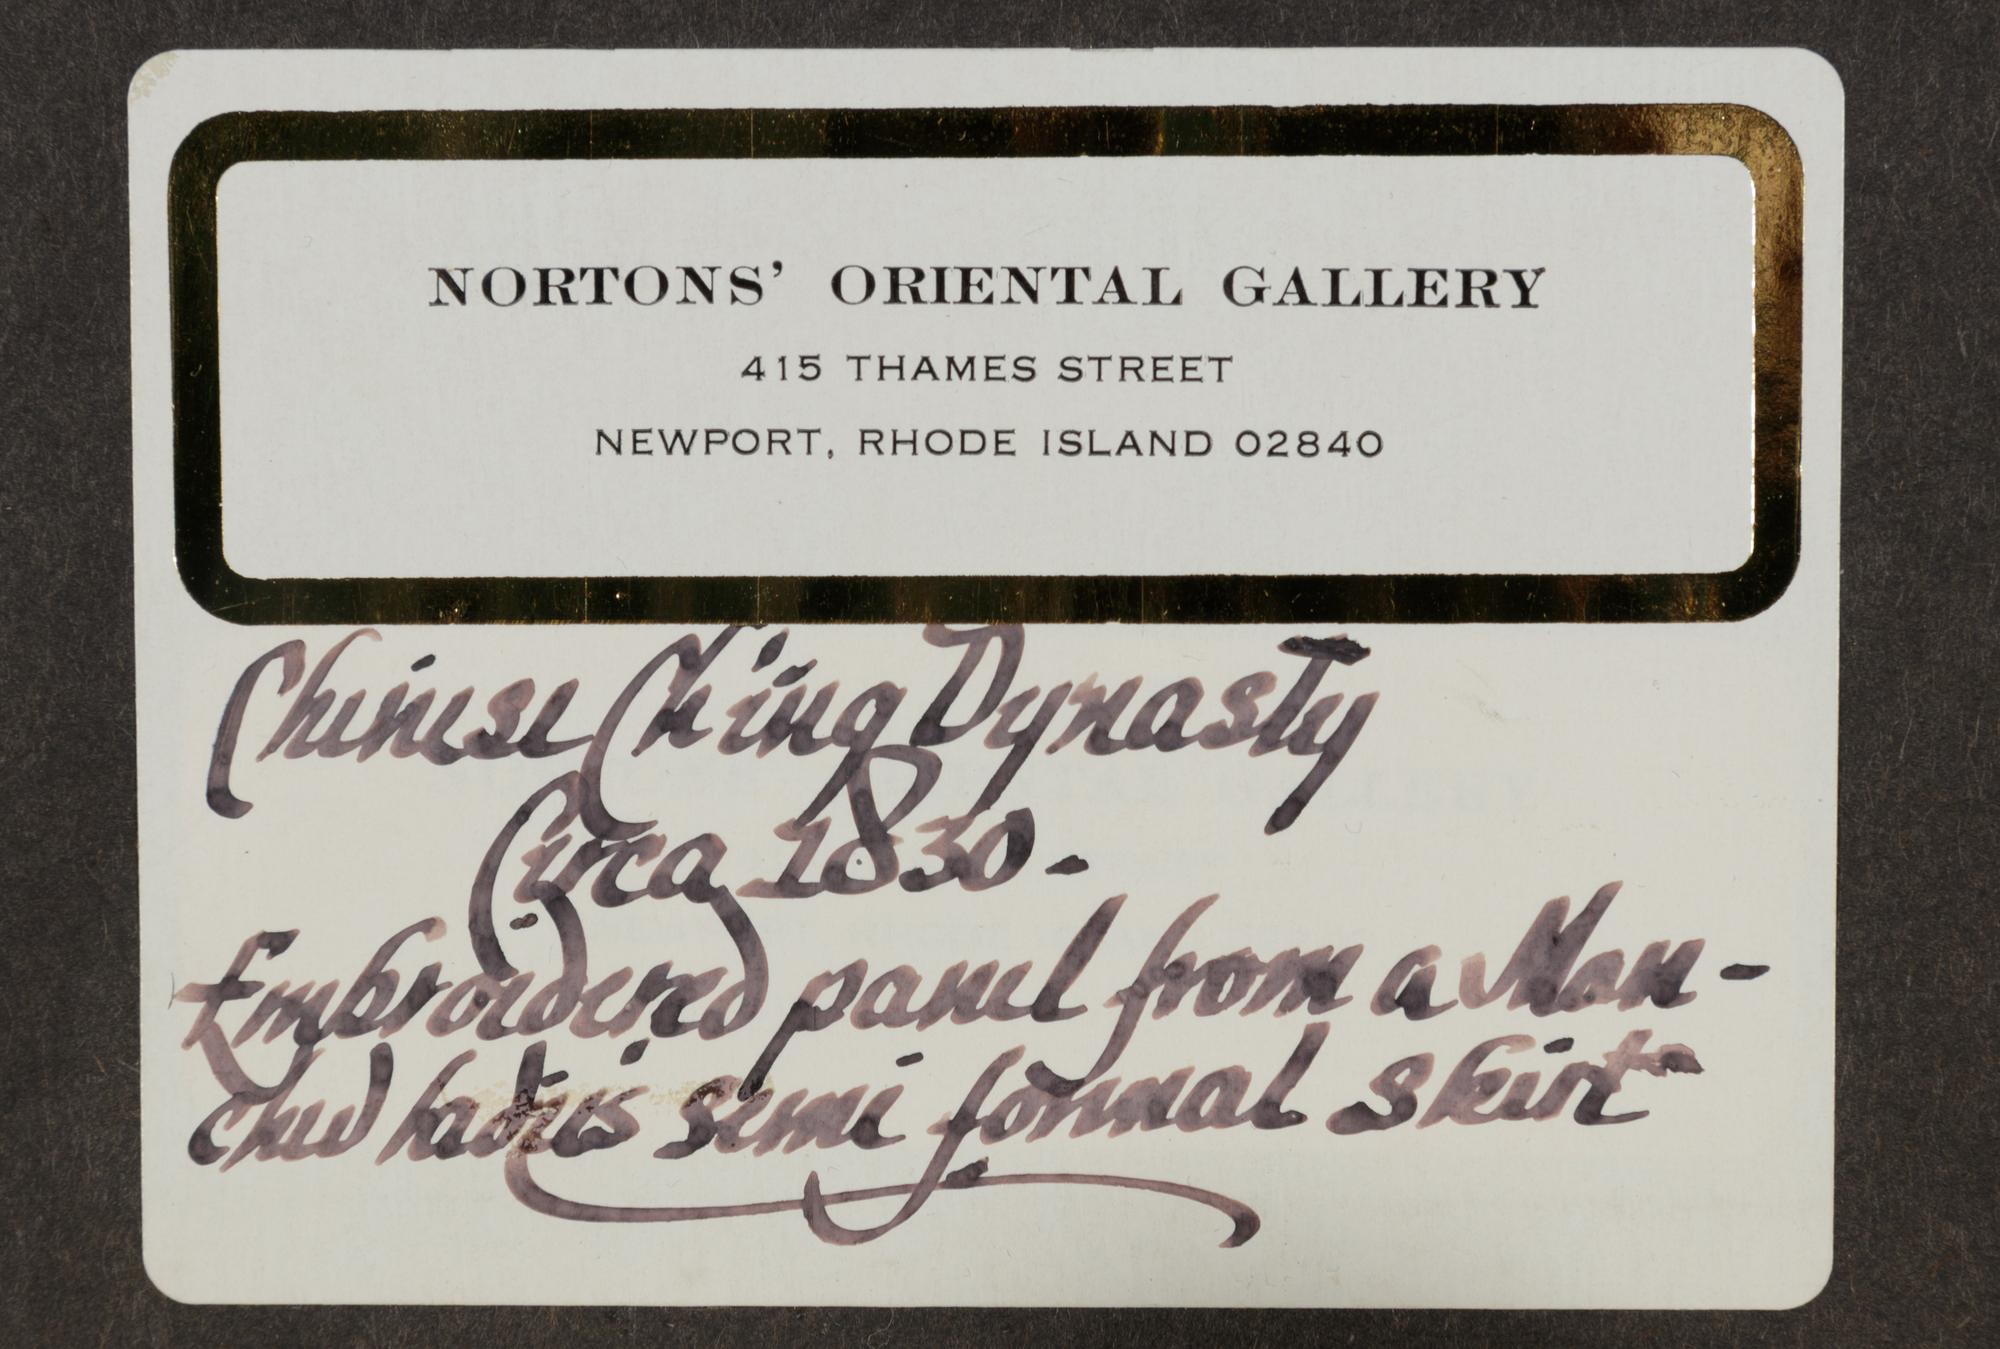 NORTONS' ORIENTAL GALLERY
415 THAMES STREET
NEWPORT, RHODE ISLAND 02840
Chinese Ch'ing Dynasty
Circa 1830-
Embroidered panel from a Man-
chu ladies semi formal skirt-